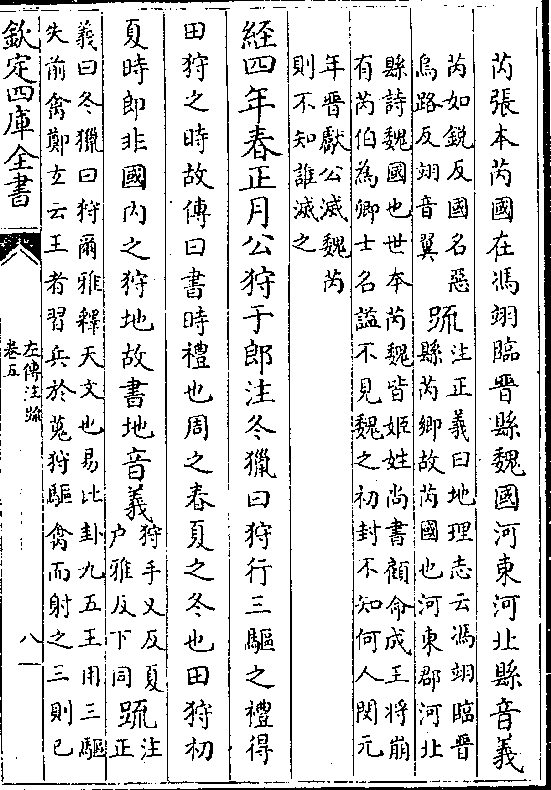 芮張本芮國在馮翊臨晉縣魏國河東河北縣音義
芮如銳反國名惡
烏路反翊音翼
疏
注正義曰地理志云馮翊臨晉
縣芮鄉故芮國也河東郡河北
縣詩魏國也世本芮魏皆姬姓尚書顧命成王將崩
有芮伯為卿士名謚不見魏之初封不知何人閔元
年晉獻公滅魏芮
則不知誰滅之
經四年春正月公狩于郎注冬獵曰狩行三驅之禮得
田狩之時故傳曰書時禮也周之春夏之冬也田狩杒
夏時郎非國內之狩地故書地音義
狩手又反夏
户雅反下同
疏
注
正
義曰冬獵曰狩爾雅釋天文也易比卦九五王用三驅
失前禽鄭𤣥云王者習兵於蒐狩驅禽而射之三則已
欽定四庫全書
左傳注疏
卷五
八